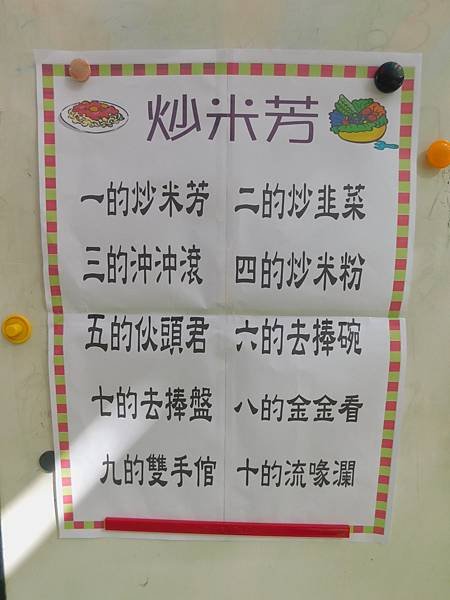 炒米芳
一的炒米芳 二的炒韭菜
三的沖沖滾 四的炒米粉
五的伙頭君 六的去捧碗
七的去捧盤 八的金金看
九的雙手倌 十的流喙瀾